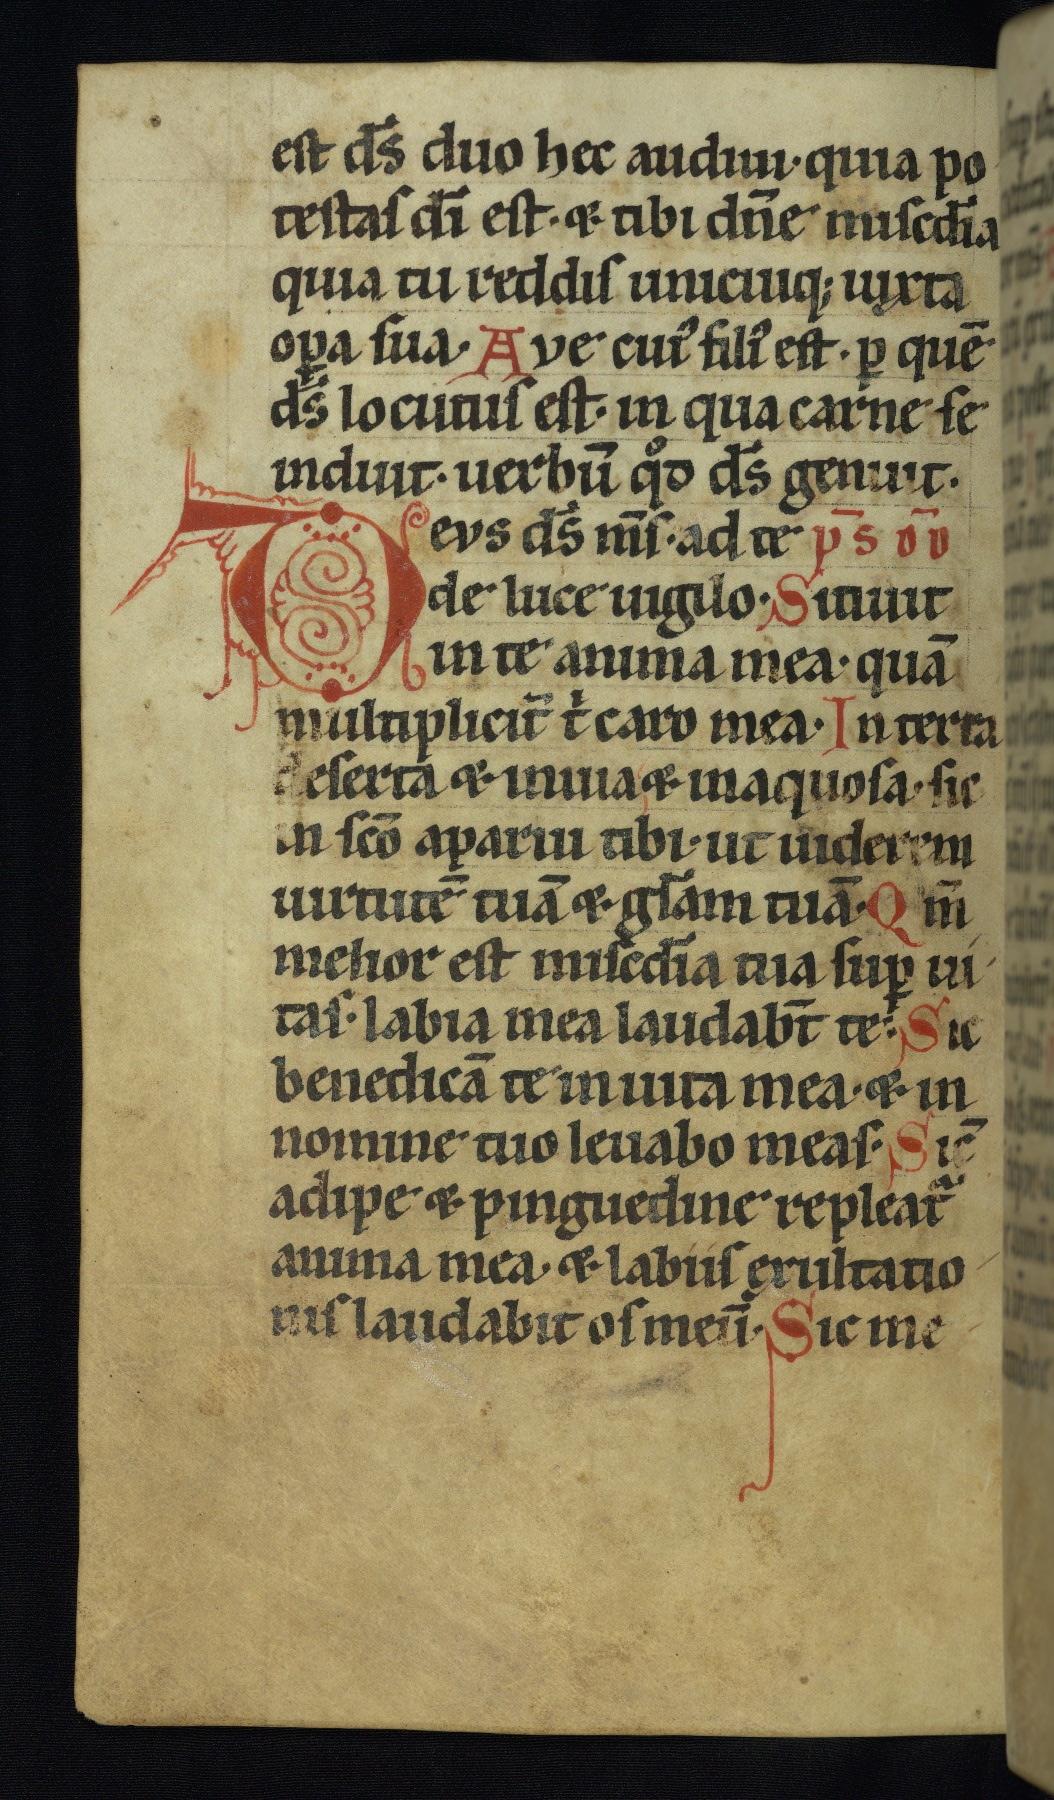 est ds̄ duo hec audiui· quia po
testas dī est· & tibi dn̄e misc̄dia
quia tu reddis unicuiq; iuxta
oꝑa sua· Ave cui' fili' est· ꝑ quē
ds̄ locutus est· in qua carne se
induit· uerbū qo̊d ds̄ genuit·
Devs ds̄ ms̄· ad te ps̄ dd̄
de luce uigilo· Sitiuit
in te anima mea· quā
multiplicit̄ t̄ caro mea· In terra
deserta & inuia & inaquosa· sic
in sc̄o aparui tibi· ut uiderem
uirtutē tuā & gl̄am tuā· Qm̄
melior est misc̄dia tua suꝑ ui
tas· labia mea laudabt̄ te· Sic
benedicā te in uita mea· & in
nomine tuo leuabo meas· Sic̄
adipe & pinguedine repleat̄
anima mea· & labiis exultatio
nis laudabit os meū· Sic me